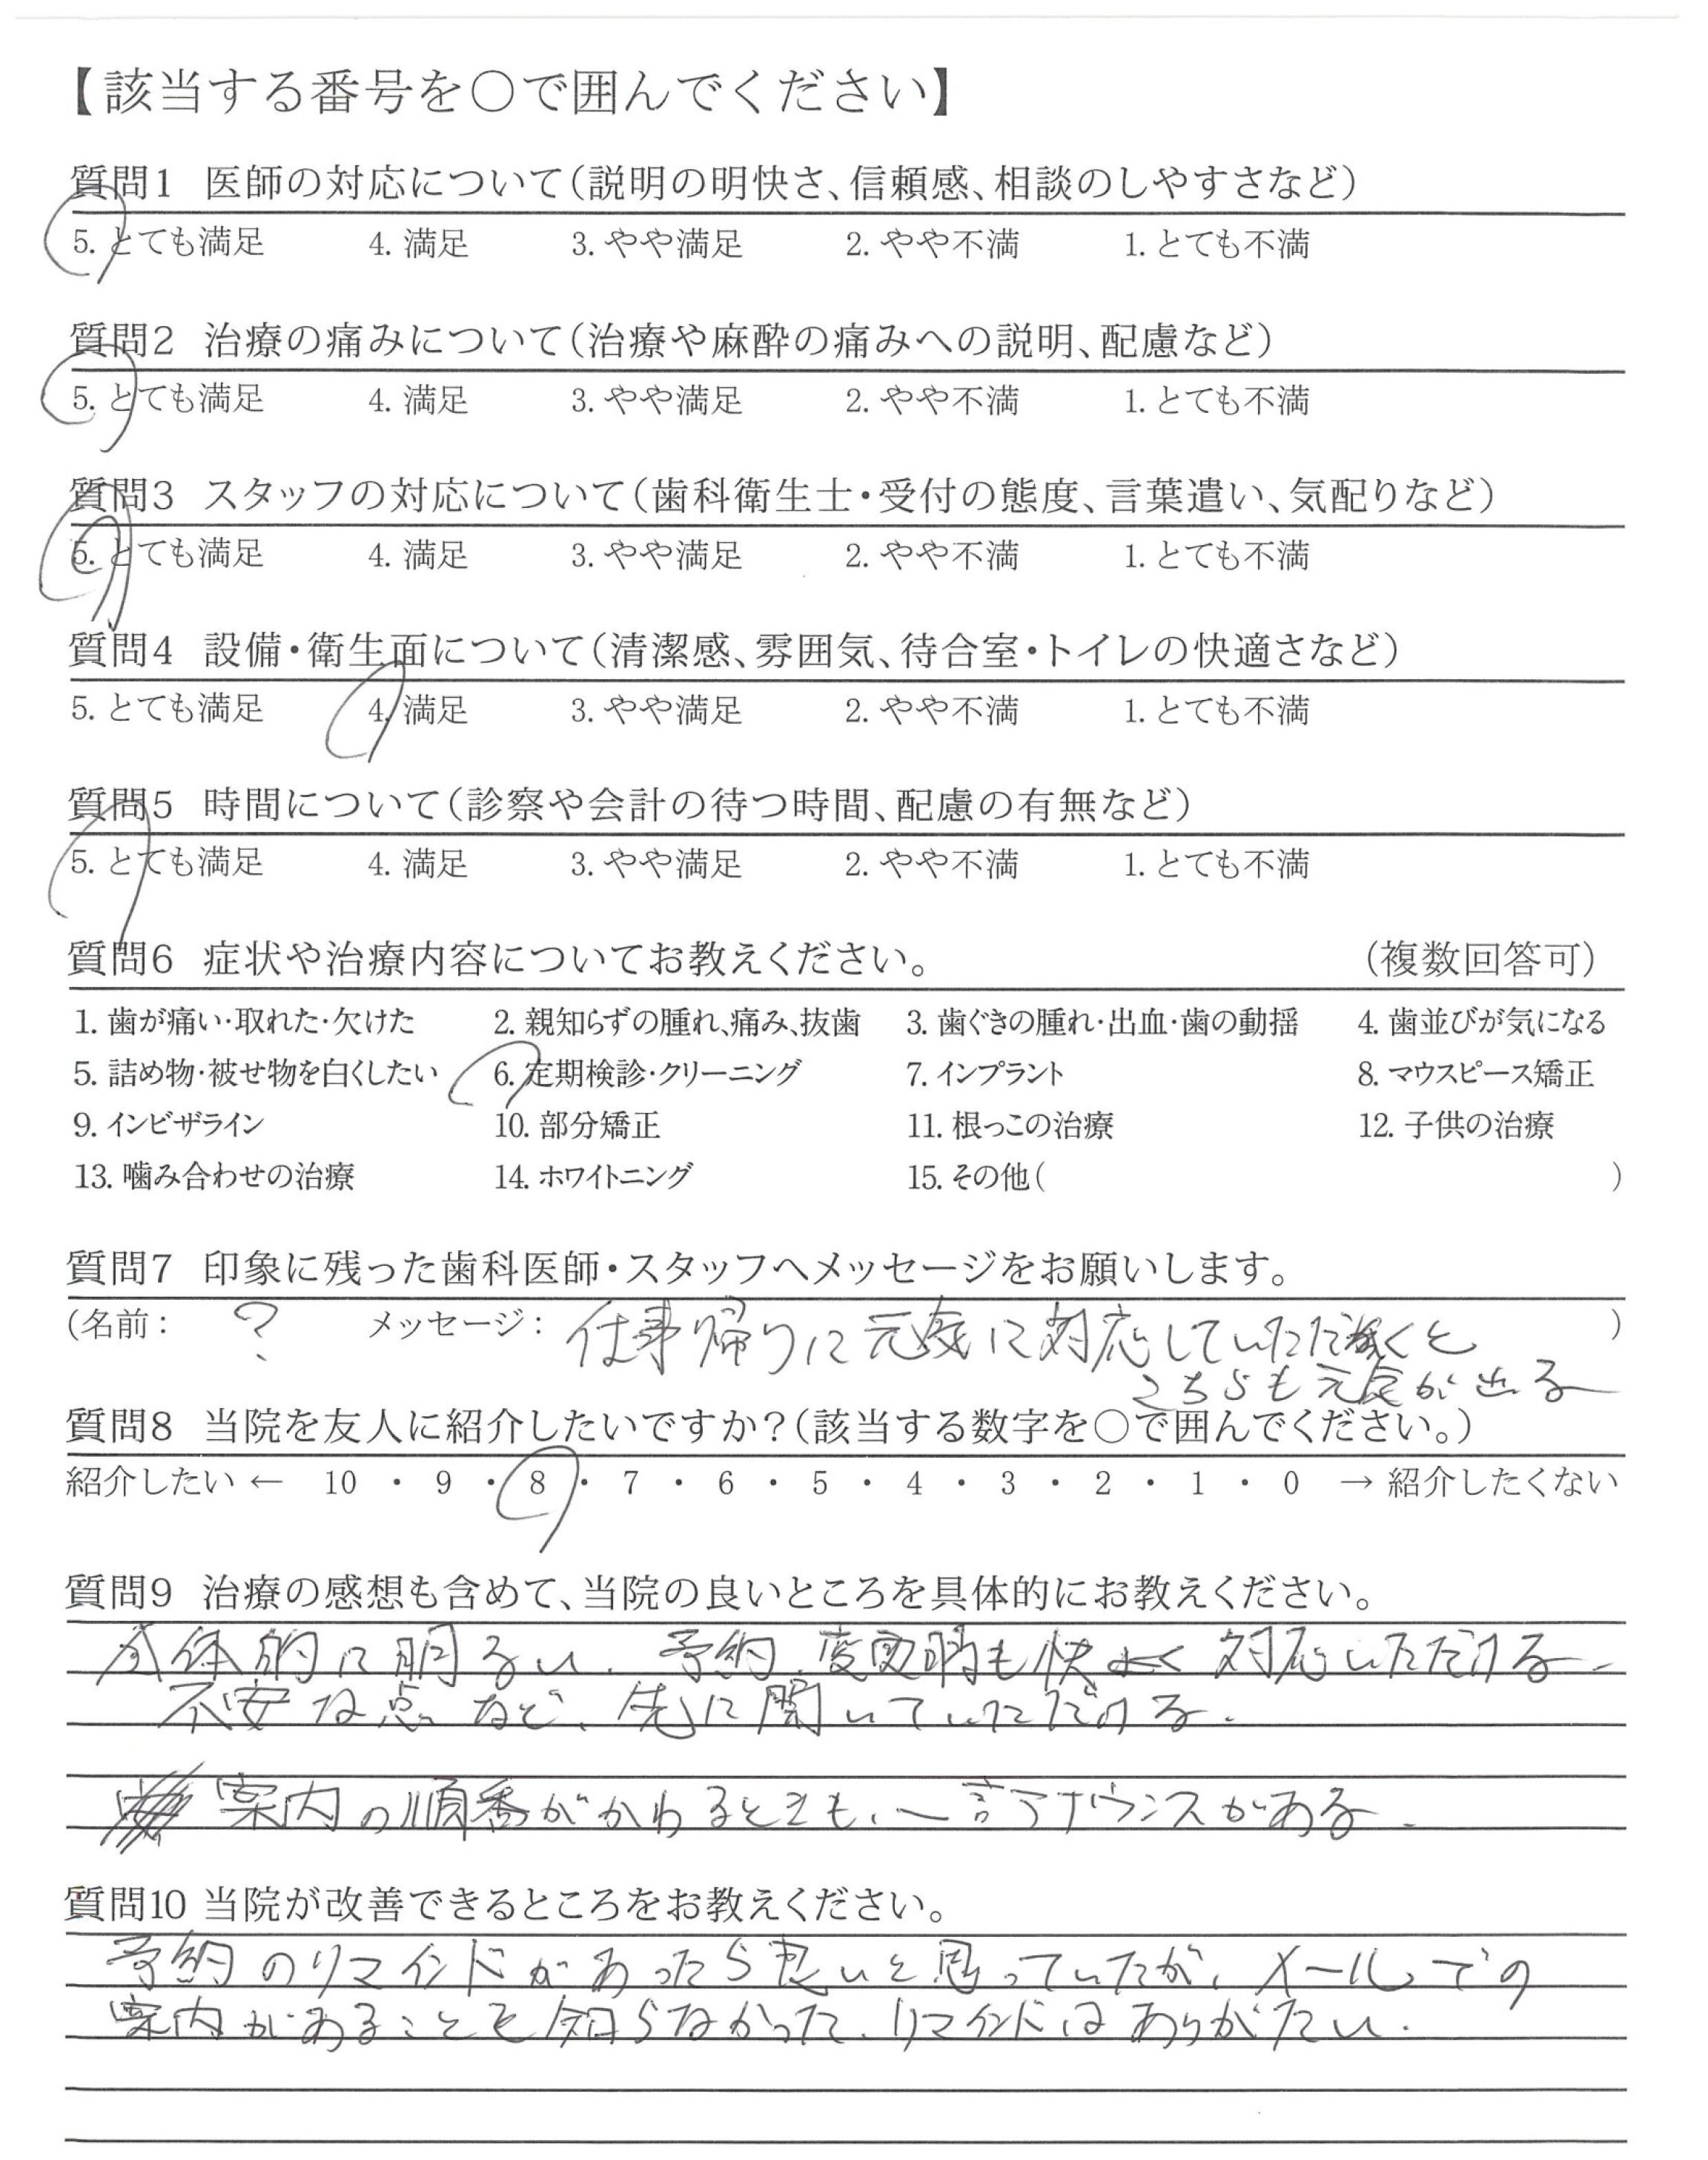 【該当する番号を○で囲んでください】
質問1 医師の対応について(説明の明快さ、信頼感、相談のしやすさなど)
5. とても満足 4. 満足 3. やや満足 2. やや不満 1. とても不満
質問2 治療の痛みについて(治療や麻酔の痛みへの説明、配慮など)
5. とても満足 4. 満足 3. やや満足 2. やや不満 1. とても不満
質問3 スタッフの対応について(歯科衛生士・受付の態度、言葉遣い、気配りなど)
5. とても満足 4. 満足 3. やや満足 2. やや不満 1. とても不満
質問4 設備・衛生面について(清潔感、雰囲気、待合室・トイレの快適さなど)
5. とても満足 4. 満足 3. やや満足 2. やや不満 1. とても不満
質問5 時間について(診察や会計の待つ時間、配慮の有無など)
5. とても満足 4. 満足 3. やや満足 2. やや不満 1. とても不満
質問6 症状や治療内容についてお教えください。 (複数回答可)
1. 歯が痛い・取れた・欠けた 2. 親知らずの腫れ、痛み、抜歯 3. 歯ぐきの腫れ・出血・歯の動揺 4. 歯並びが気になる
5. 詰め物・被せ物を白くしたい 6. 定期検診・クリーニング 7. インプラント 8. マウスピース矯正
9. インビザライン 10. 部分矯正 11. 根っこの治療 12. 子供の治療
13. 噛み合わせの治療 14. ホワイトニング 15. その他( )
質問7 印象に残った歯科医師・スタッフへメッセージをお願いします。
(名前: ? メッセージ: 仕事帰りに元気に対応していただくと )
こちらも元気が出る
質問8 当院を友人に紹介したいですか?(該当する数字を○で囲んでください。)
紹介したい ← 10 ・ 9 ・ 8 ・ 7 ・ 6 ・ 5 ・ 4 ・ 3 ・ 2 ・ 1 ・ 0 → 紹介したくない
質問9 治療の感想も含めて、当院の良いところを具体的にお教えください。
全体的に明るい. 予約、変更時も快よく対応いただける.
不安な点など、先に聞いていただける.
案内の順番がかわるときも、一言アナウンスがある.
質問10 当院が改善できるところをお教えください。
予約のリマインドがあったら良いと思っていたが、メールでの
案内があることを知らなかった. リマインドはありがたい.